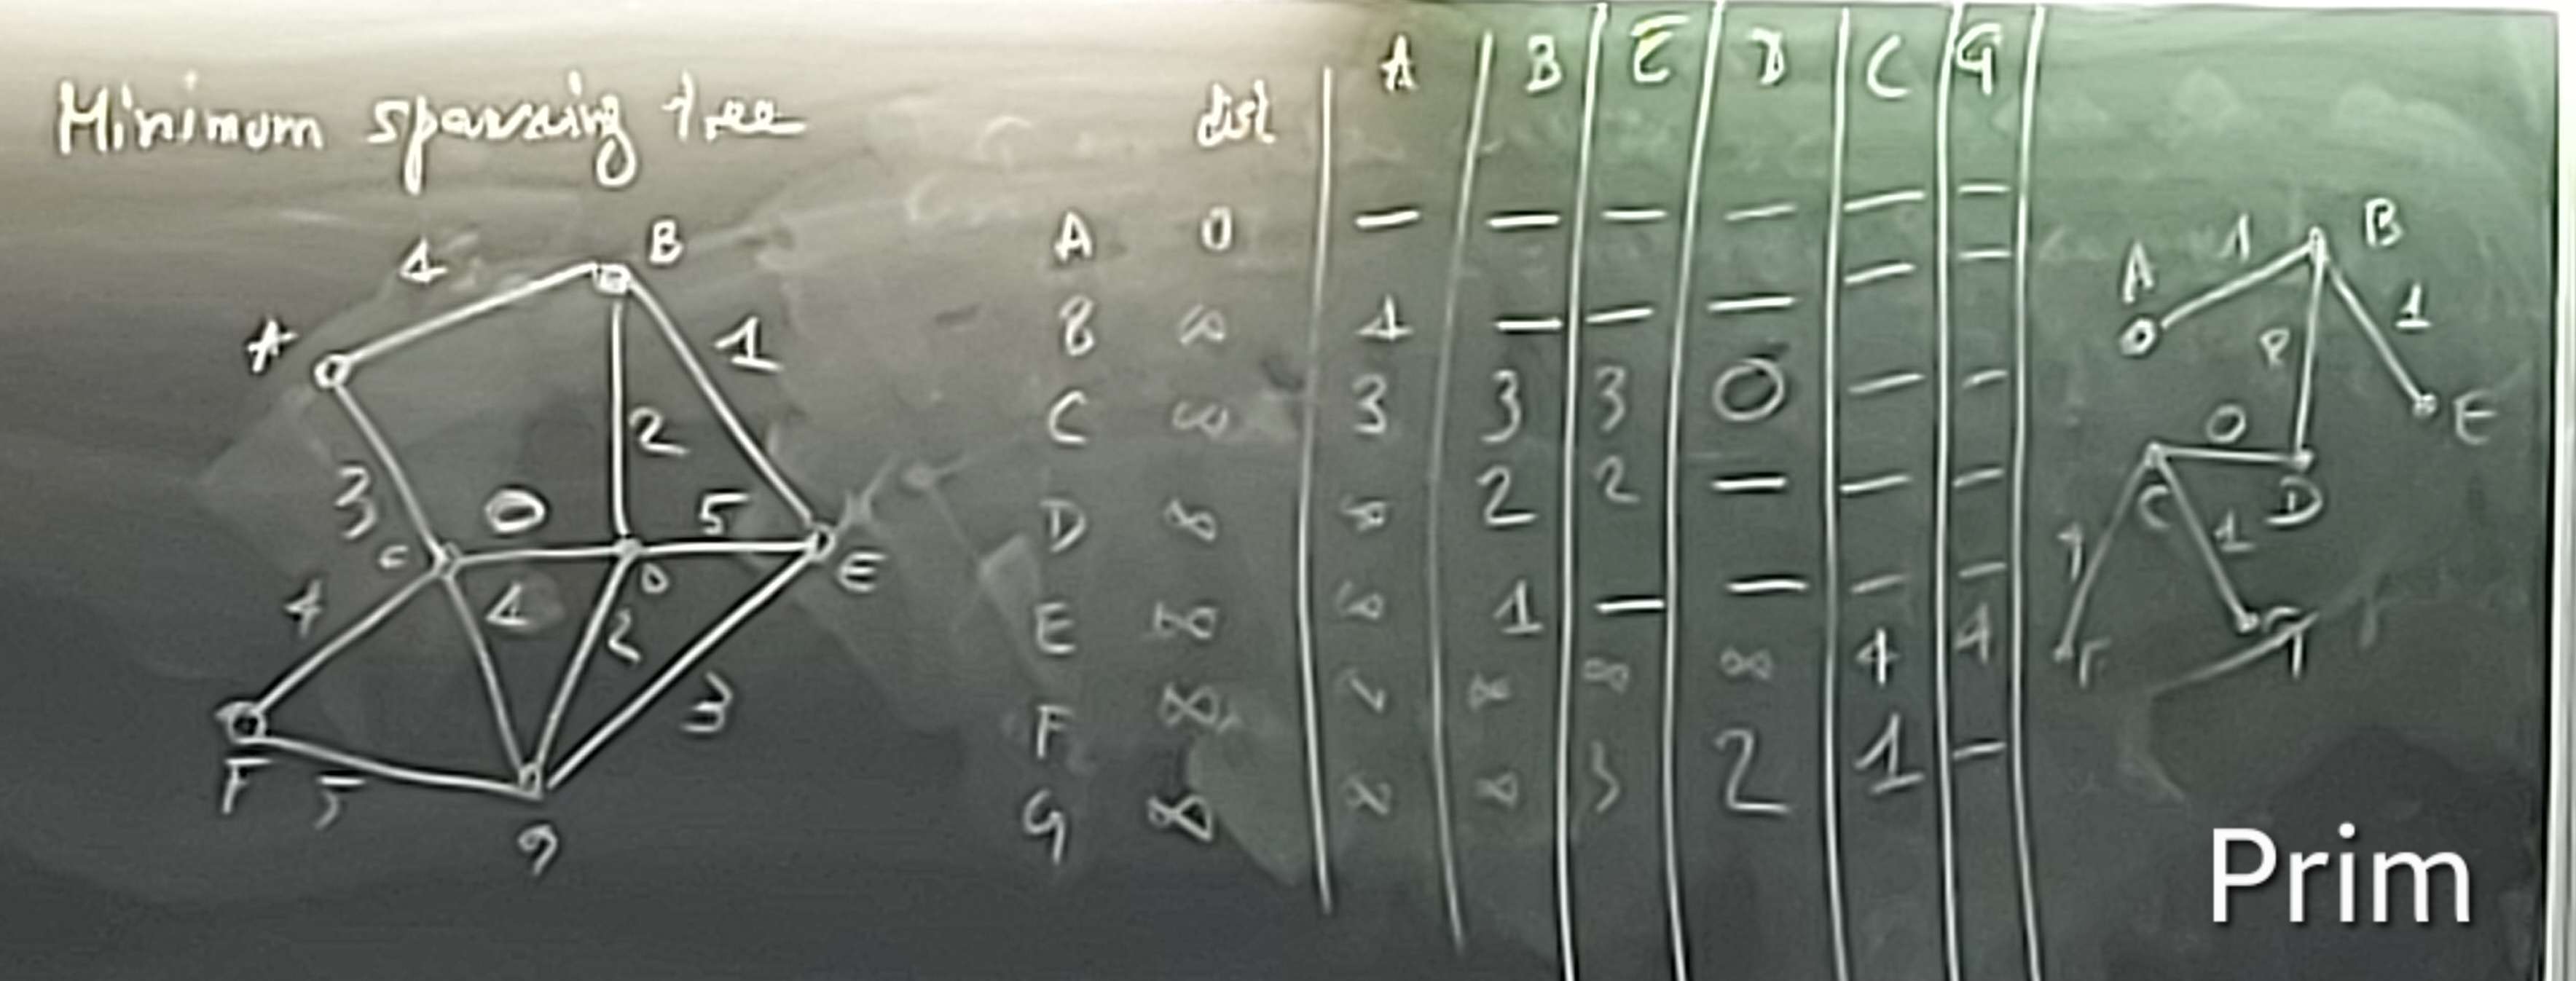 Minimum spanning tree
A
4
B
1
2
3
C
0
D
5
E
4
1
2
3
F
5
G
dist A B E D C G
A 0 — — — — — —
B ∞ 1 — — — — —
C ∞ 3 3 3 0 — —
D ∞ ∞ 2 2 — — —
E ∞ ∞ 1 — — — —
F ∞ ∞ ∞ ∞ 4 4
G ∞ ∞ ∞ 3 2 1 —
A
1
B
1
E
0
C
D
1
Prim